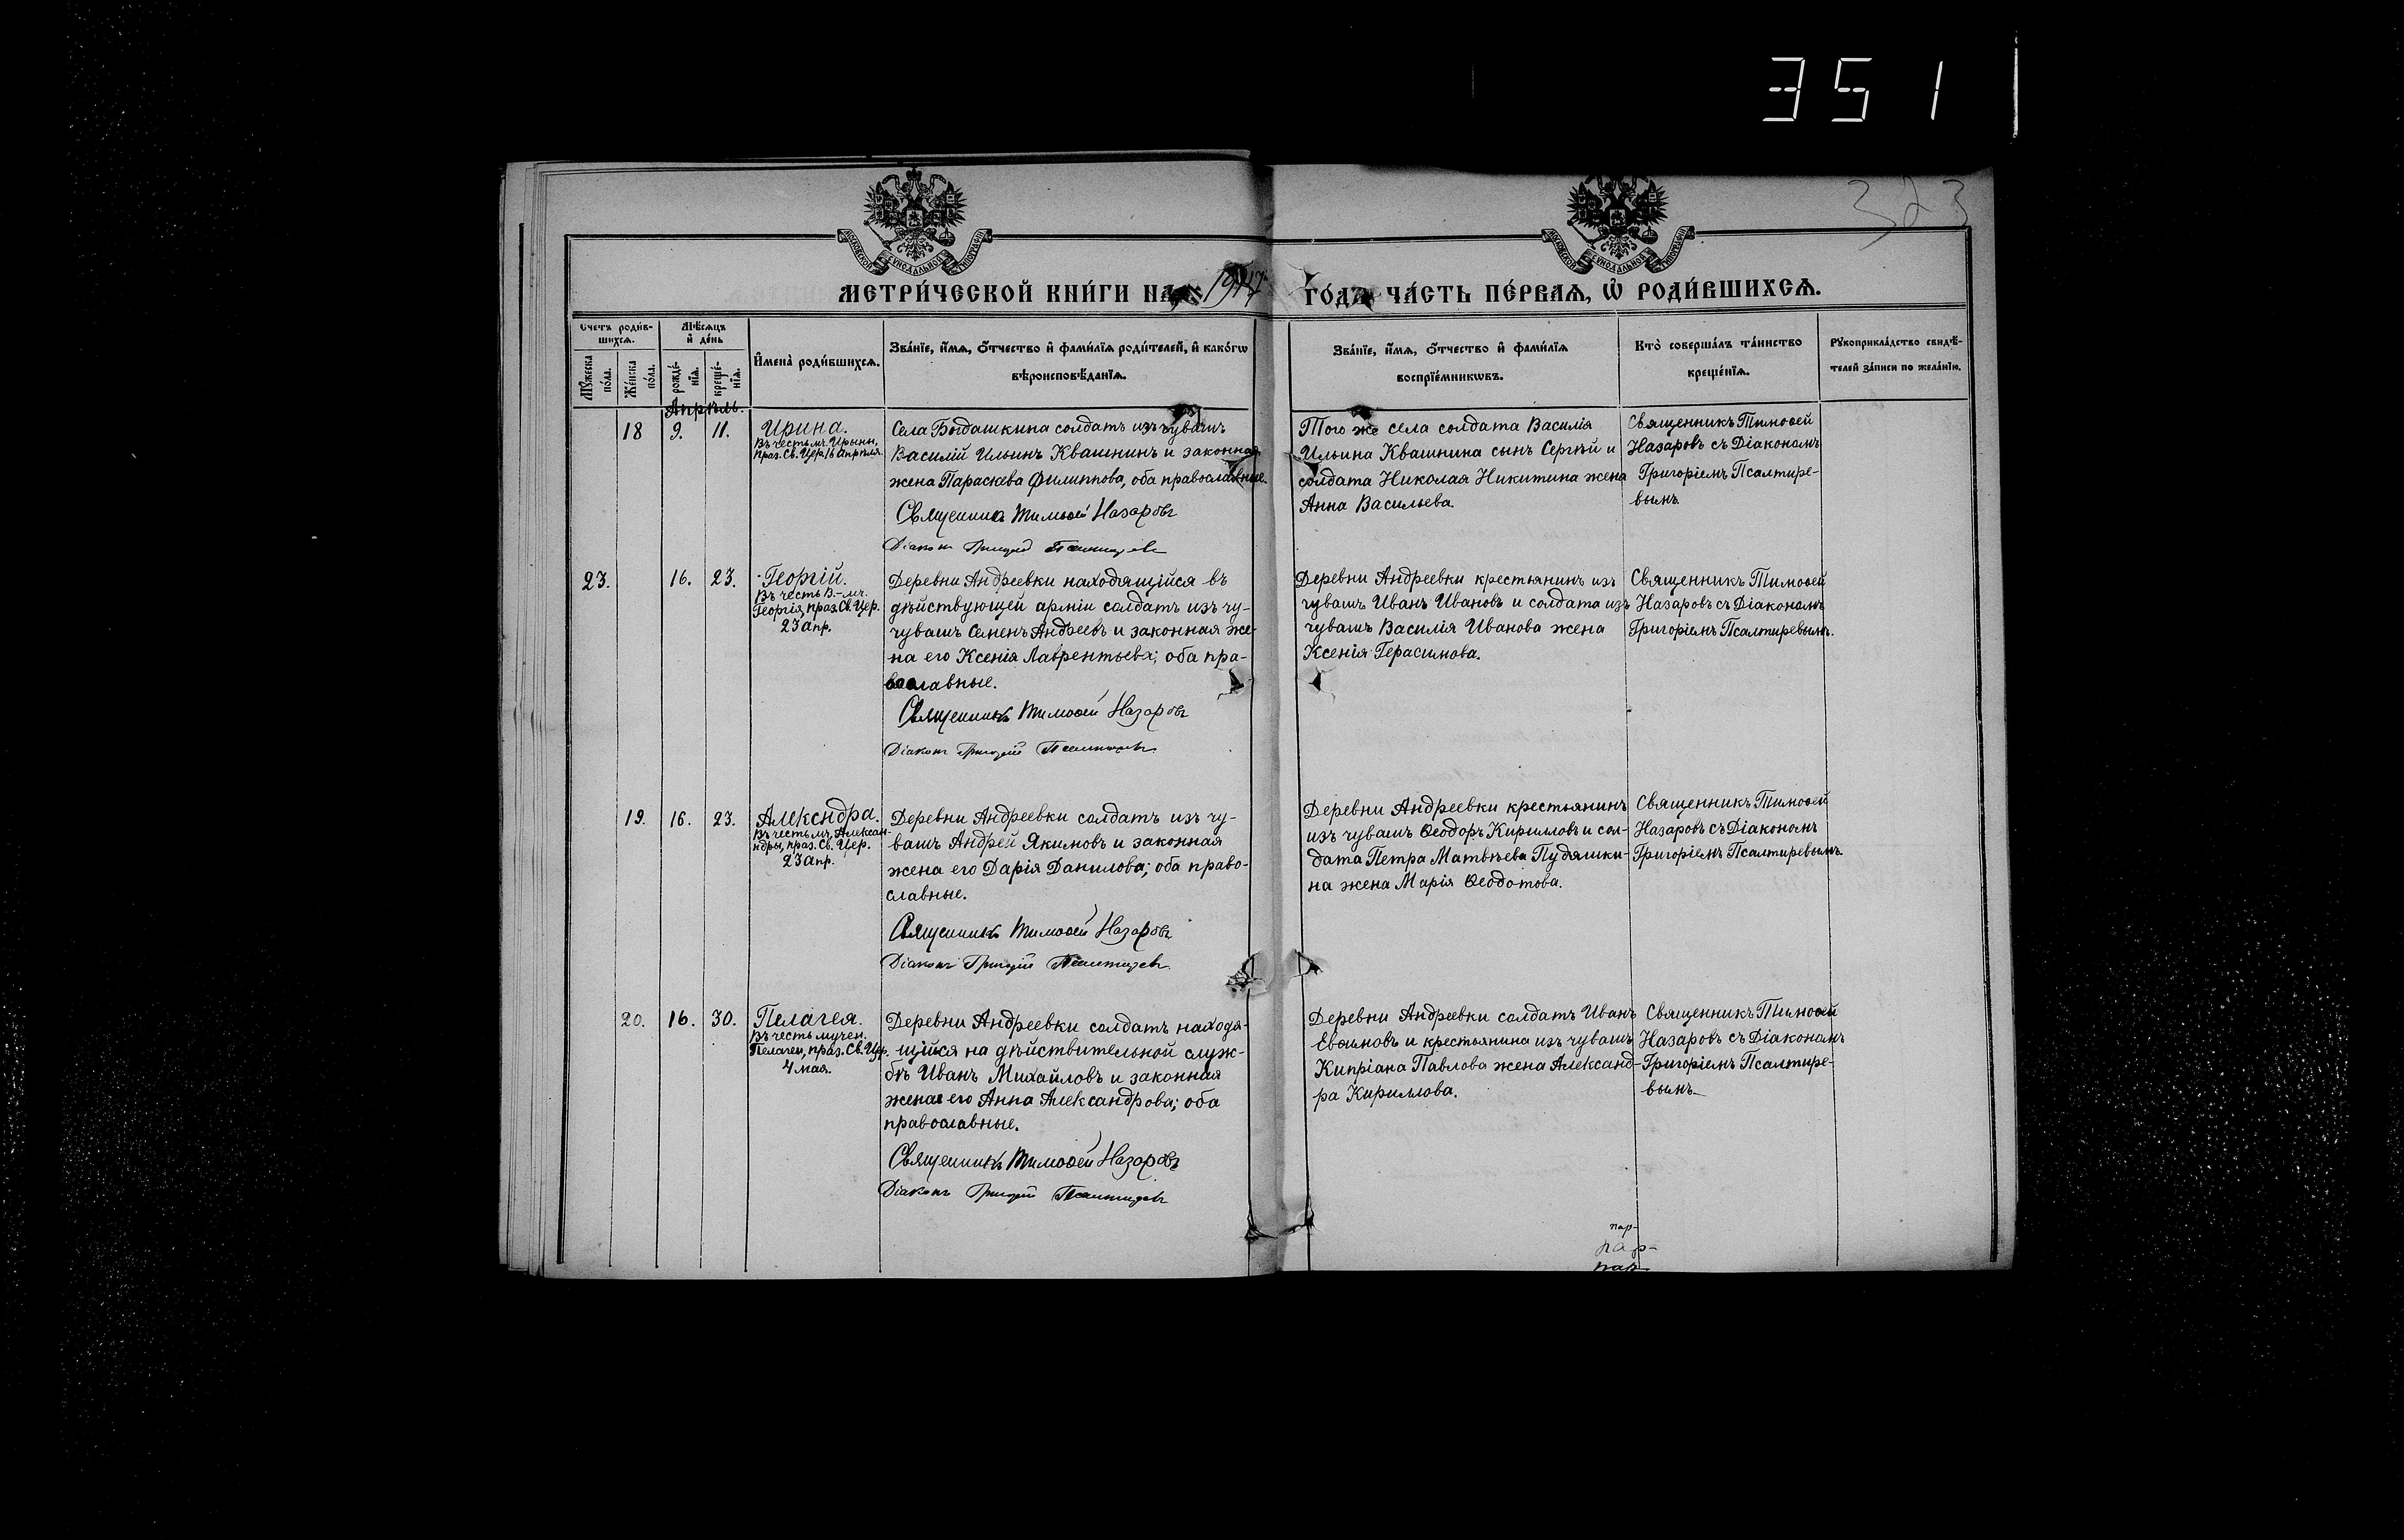 351
323
МОСКОВСКОЙ СѴНОДАЛЬНОЙ ТИПОГРАФІИ
МОСКОВСКОЙ СѴНОДАЛЬНОЙ ТИПОГРАФІИ
МЕТРИ́ЧЕСКОЙ КНИ́ГИ НА 1917 ГО́ДЪ ЧА́СТЬ ПЕ́РВАѦ, Ѽ РОДИ́ВШИХСѦ.
Счетъ роди́в-
шихсѧ.
Мѣ́сѧцъ
и҆ де́нь
Мꙋ́жеска
по́ла.
Же́нска
по́ла.
рожде́-
нїѧ.
креще́-
нїѧ.
И҆мена̀ роди́вшихсѧ.
Зва́нїе, и҆́мѧ, ѻ҆́тчество и҆ фами́лїѧ роди́телей, и҆ како́гѡ
вѣроисповѣ́данїѧ.
Зва́нїе, и҆́мѧ, ѻ҆́тчество и҆ фами́лїѧ
воспрїе́мникѡвъ.
Кто̀ соверша́лъ та́инство
креще́нїѧ.
Рꙋкоприкла́дство свидѣ́-
телей за́писи по жела́нїю.
Апрѣль.
18 9. 11.
Ирина.
Въ честь мч. Ирины,
праз. Св. Цер. 16 апрѣля
Села Быдашкина солдатъ изъ чувашъ
Василій Ильинъ Квашнинъ и законная
жена Параскева Филиппова, оба православные.
Священникъ Тимоѳей Назаровъ
Діаконъ Григорій Псалтиревъ
Того же села солдата Василія
Ильина Квашнина сынъ Сергѣй и
солдата Николая Никитина жена
Анна Васильева.
Священникъ Тимоѳей
Назаровъ съ Діакономъ
Григоріемъ Псалтире-
вымъ.
23. 16. 23.
Георгій.
Въ честь В.-мч.
Георгія, праз. Св. Цер.
23 апр.
Деревни Андреевки находящійся въ
дѣйствующей арміи солдатъ изъ чу-
чувашъ Семенъ Андреевъ и законная же-
на его Ксенія Лаврентьева; оба пра-
вославные.
Священникъ Тимоѳей Назаровъ
Діаконъ Григорій Псалтиревъ
Деревни Андреевки крестьянинъ изъ
чувашъ Иванъ Ивановъ и солдата изъ
чувашъ Василія Иванова жена
Ксенія Герасимова.
Священникъ Тимоѳей
Назаровъ съ Діакономъ
Григоріемъ Псалтиревымъ.
19. 16. 23.
Александра.
Въ честь мч. Алексан-
ндры, праз. Св. Цер.
23 апр.
Деревни Андреевки солдатъ изъ чу-
вашъ Андрей Якимовъ и законная
жена его Дарія Данилова; оба право-
славные.
Священникъ Тимоѳей Назаровъ
Діаконъ Григорій Псалтиревъ
Деревни Андреевки крестьянинъ
изъ чувашъ Ѳеодоръ Кирилловъ и сол-
дата Петра Матвѣева Пудяшки-
на жена Марія Ѳеодотова.
Священникъ Тимоѳей
Назаровъ съ Діакономъ
Григоріемъ Псалтиревымъ.
20. 16. 30.
Пелагея.
Въ честь мучен.
Пелагеи, праз. Св. Цер.
4 мая.
Деревни Андреевки солдатъ находя-
щійся на дѣйствительной служ-
бѣ Иванъ Михайловъ и законная
жена его Анна Александрова; оба
православные.
Священникъ Тимоѳей Назаровъ
Діаконъ Григорій Псалтиревъ
Деревни Андреевки солдатъ Иванъ
Евѳимовъ и крестьянина изъ чувашъ
Кипріана Павлова жена Александ-
ра Кириллова.
Священникъ Тимоѳей
Назаровъ съ Діакономъ
Григоріемъ Псалтире-
вымъ.
пар-
пар-
пар-